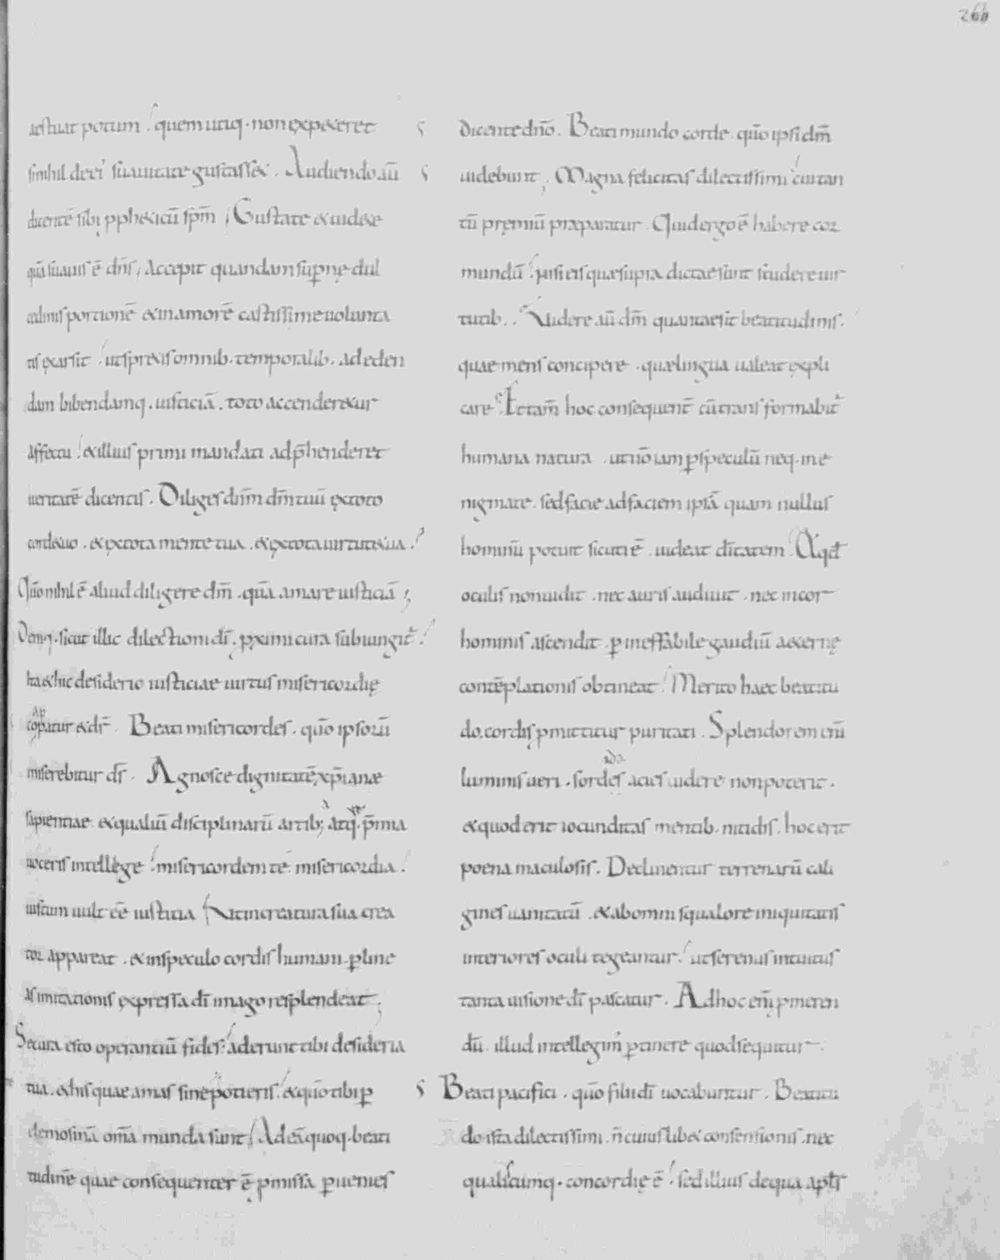 266
aestuat potum quem utiq· non expeteret
si nihil de ei' suauitate gustasset. Audiendo aū
dicentē sibi ppheticū sp̄m ; Gustate & uidete
quā suauis ē dn̄s, Accepit quandam sup̱nę dul
cedinis portionē & in amorē castissime uolunta
tis exarsit ut spretis omnib. temporalib. ad eden
dam bibendamq. iusticiā. toto accenderetur
affectu ! & illius primi mandati adp̄henderet
ueritatē dicentis. Diliges dn̄m dm̄ tuū ex toto
corde tuo. & ex tota mente tua. & ex tota uirtute tua.
Quō nihil ē aliud diligere dm̄. quā amare iusticiā ;
Deniq. sicut illic dilectioni dī. pximi cura subiungit'.
Ita & hic desiderio iusticiae uirtus misericordię
copatur & dr̄. Beati misericordes. quō ipsorū
miserebitur ds̄. Agnosce dignitatē xp̄ianae
sapientiae & qualiū disciplinarū artib; atq. p̄mia
uoceris intellege ! misericordem te misericordia.
iustum uult ēē iusticia Ut in creatura sua crea
tor appareat. & in speculo cordis humani. p̱ line
as imitationis expressa dī imago resplendeat.
Secura esto operantiū fides ! aderunt tibi desideria
tua. & his quae amas sine potieris & quō tibi p̱
elemosinā om̄a munda sunt, Ad eā quoq. beati
tudinē quae consequenter ē pmissa p̱uenies
dicente dn̄o. Beati mundo corde. quō ipsi dm̄
uidebunt, Magna felicitas dilectissimi cui tan
tū pręmiū praeparatur. Quid ergo ē habere cor
mundū ! nisi eis quae supra dictae sunt studere uir
tutib.. Uidere aū dm̄ quantae sit beatitudinis.
quae mens concipere. quae lingua ualeat expli
care Et tam̄ hoc consequent' cū transformabit'
humana natura. ut nō iam p̱ speculū neq. in e
nigmate. sed facie ad faciem ipsā quam nullus
hominū potuit sicuti ē. uideat dītatem. & qd
oculis non uidit. nec auris audiuit. nec in cor
hominis ascendit. p̱ ineffabile gaudiū aeternę
contēplationis obtineat. Merito haec beatitu
do. cordis pmittitur puritati. Splendorem enī
luminis ueri. sordes acies uidere non poterit.
& quod erit iocunditas mentib. nitidis. hoc erit
poena maculosis. Declinentur terrenarū cali
gines uanitatū. & ab omni squalore iniquitatis
interiores oculi tegeantur. ut serenus intuitus
tanta uisione dī pascatur. Ad hoc enī pmeren
dū. illud intellegim' p̱tinere quod sequitur.
Beati pacifici. quō filii dī uocabuntur. Beatitu
do ista dilectissimi. n̄ cuiuslibet consensionis. nec
qualiscumq. concordię ē. sed illius de qua apl̄s